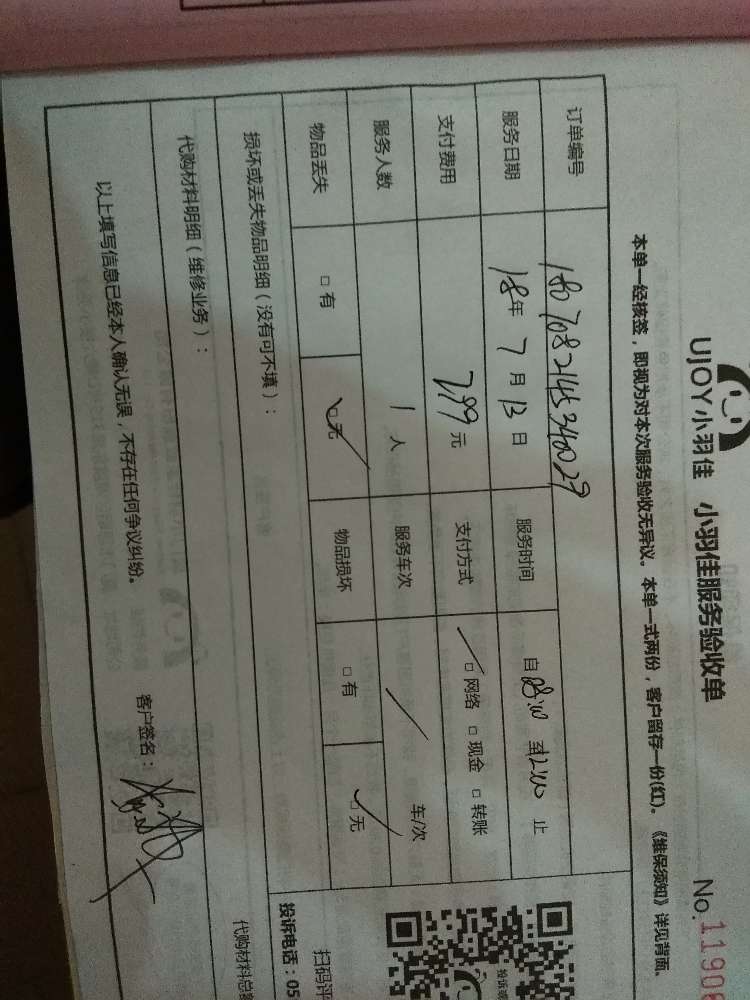 UJOY小羽佳 小羽佳服务验收单
No.11908
本单一经核签，即视为对本次服务验收无异议。本单一式两份，客户留存一份(红)。《维保须知》详见背面。
订单编号 1807082145340029
服务日期 18年 7月 13日 服务时间 自 08:00 至12:00 止
支付费用 299元 支付方式 □网络 □现金 □转账
服务人数 1人 服务车次 / 车/次
物品丢失 □有 □无 物品损坏 □有 □无
损坏或丢失物品明细（没有可不填）：
代购材料明细（维修业务）：
代购材料总
以上填写信息已经本人确认无误，不存在任何争议纠纷。
客户签名：
扫码评
投诉电话：05